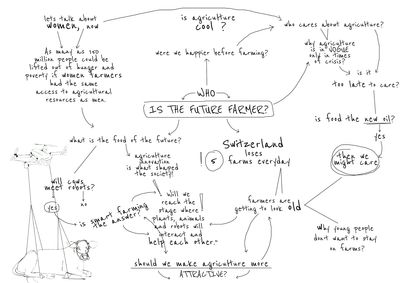 let's talk about
women, now
As many as 150
million people could be
lifted out of hunger and
poverty if women farmers
had the same
access to agricultural
resources as men.
is agriculture
cool ?
were we happier before farming?
who cares about agriculture?
why agriculture
is in VOGUE
only in times
of crisis?
is it
too late to care?
is food the new oil?
yes
then we
might care
WHO
IS THE FUTURE FARMER?
what is the food of the future?
agriculture
innovation
is what shaped
the society!
! 5
Switzerland
loses
farms everyday
will cows
meet robots?
yes
no
is smart farming
the answer?
Will we
reach the
stage where
plants, animals
and robots will
interact and
help each other.
farmers are
getting to look old
why young people
don't want to stay
on farms?
should we make agriculture more
ATTRACTIVE?